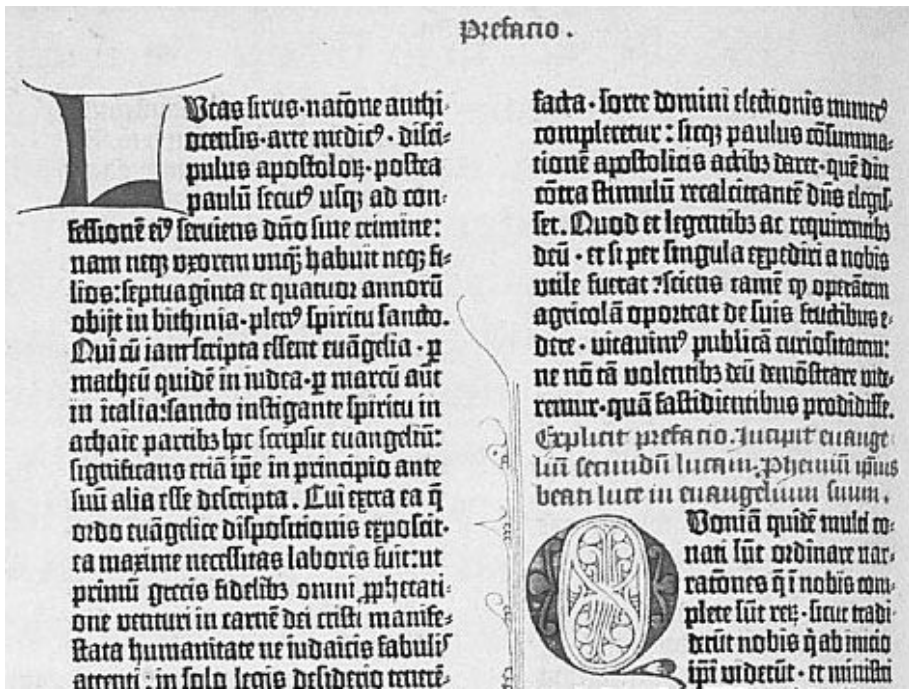 Prefacio.
LUcas sirus·natōne anthi⸗
ocensis·arte medicꝰ·disci⸗
pulus apostoloꝝ·postea
paulū secutꝰ usqꝫ ad con⸗
fessionē eiꝰ serviens dño sine crimine:
nam neqꝫ uxorem unqꝫ̄ habuit neqꝫ fi⸗
lios:septuaginta et quatuor annorū
obijt in bithinia·plenꝰ spiritu sancto.
Qui cū iam scripta essent euāgelia·ꝑ
matheū quidē in iudea·ꝑ marcū aūt
in italia:sancto instigante spiritu in
achaie partibꝫ hoc scripsit euangeliū:
significans etiā ip̄e in principio ante
suū alia esse descripta. Cui extra ea q̄
ordo euāgelice dispositionis exposcit·
ea maxime necessitas laboris fuit:ut
primū grecis fidelibꝫ omni ꝓphetati⸗
one venturi in carnē dei cristi manife⸗
stata humanitate ne iudaicis fabulis
attenti:in solo legis desiderio tenerē⸗
facta·sorte domini electionis numerꝰ
compleretur:sicqꝫ paulus cōsumma⸗
tionē apostolicis actibꝫ daret·quē diu
cōtra stimulū recalcitrantē dn̄s elegis⸗
set. Quod et legentibꝫ ac requirentibꝫ
deū·et si per singula expediri a nobis
utile fuerat:sciens tamē ꝙ operātem
agricolā oporteat de suis fructibus e⸗
dere·vitavimꝰ publicā curiositatem:
ne nō tā volentibꝫ deū demōstrare vide⸗
remur·quā fastidientibus prodidisse.
Explicit prefacio. Incipit euange⸗
liū secundū lucam. Phemiū ipsius
beati luce in euangelium suum.
QUoniā quidē multi co⸗
nati sūt ordinare nar⸗
ratōnes q̄ ī nobis com⸗
plete sūt reꝝ·sicut tradi⸗
derūt nobis q̇ ab inicio
ip̄i viderūt·et ministri